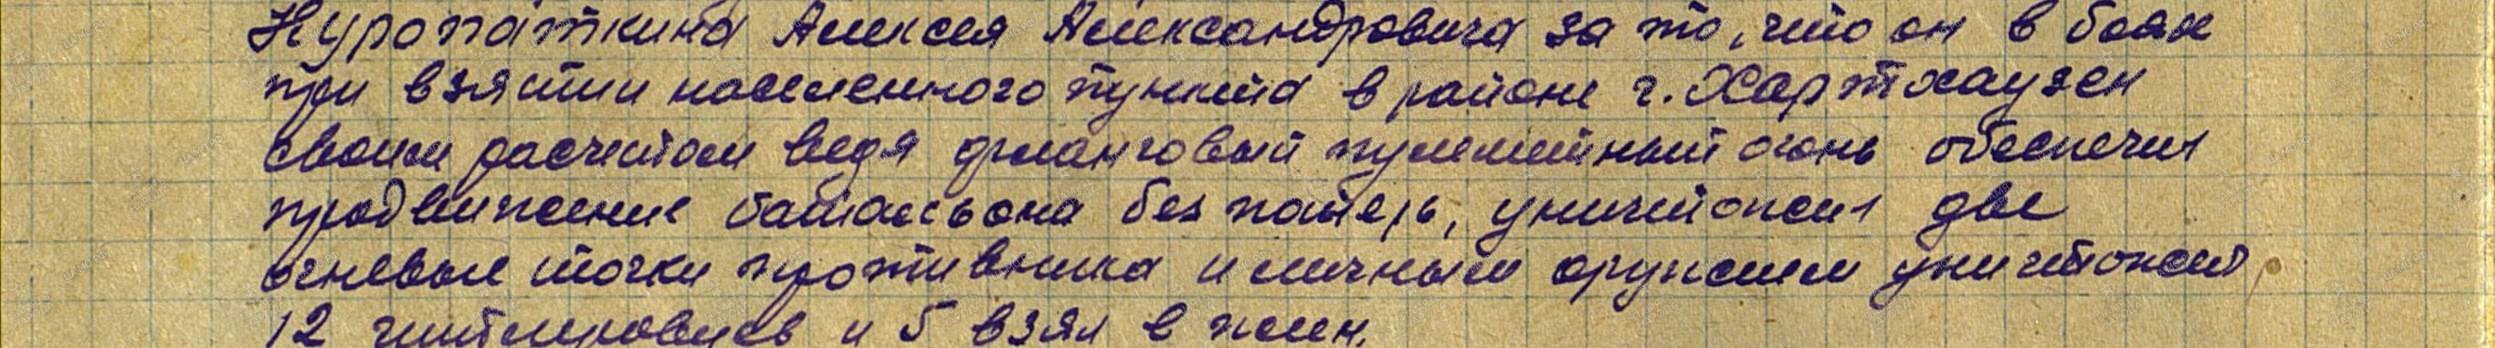 Куропаткина Алексея Александровича за то, что он в боях
при взятии населенного пункта в районе г. Хартхаузен
своим расчетом ведя фланговый пулеметный огонь обеспечил
продвижение батальона без потерь, уничтожил две
огневые точки противника и личным оружием уничтожил
12 гитлеровцев и 5 взял в плен.